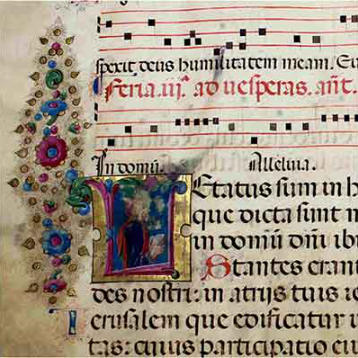 spexit deus humilitatem meam. Eu
Feria.iij. ad uesperas. añt.
In domũ. Alleluia.
LEtatus sum in h
que dicta sunt m
in domũ dñi ibi
Stantes erant
des nostri: in atrijs tuis ie
Ierusalem que edificatur u
tas: cuius participatio eiu